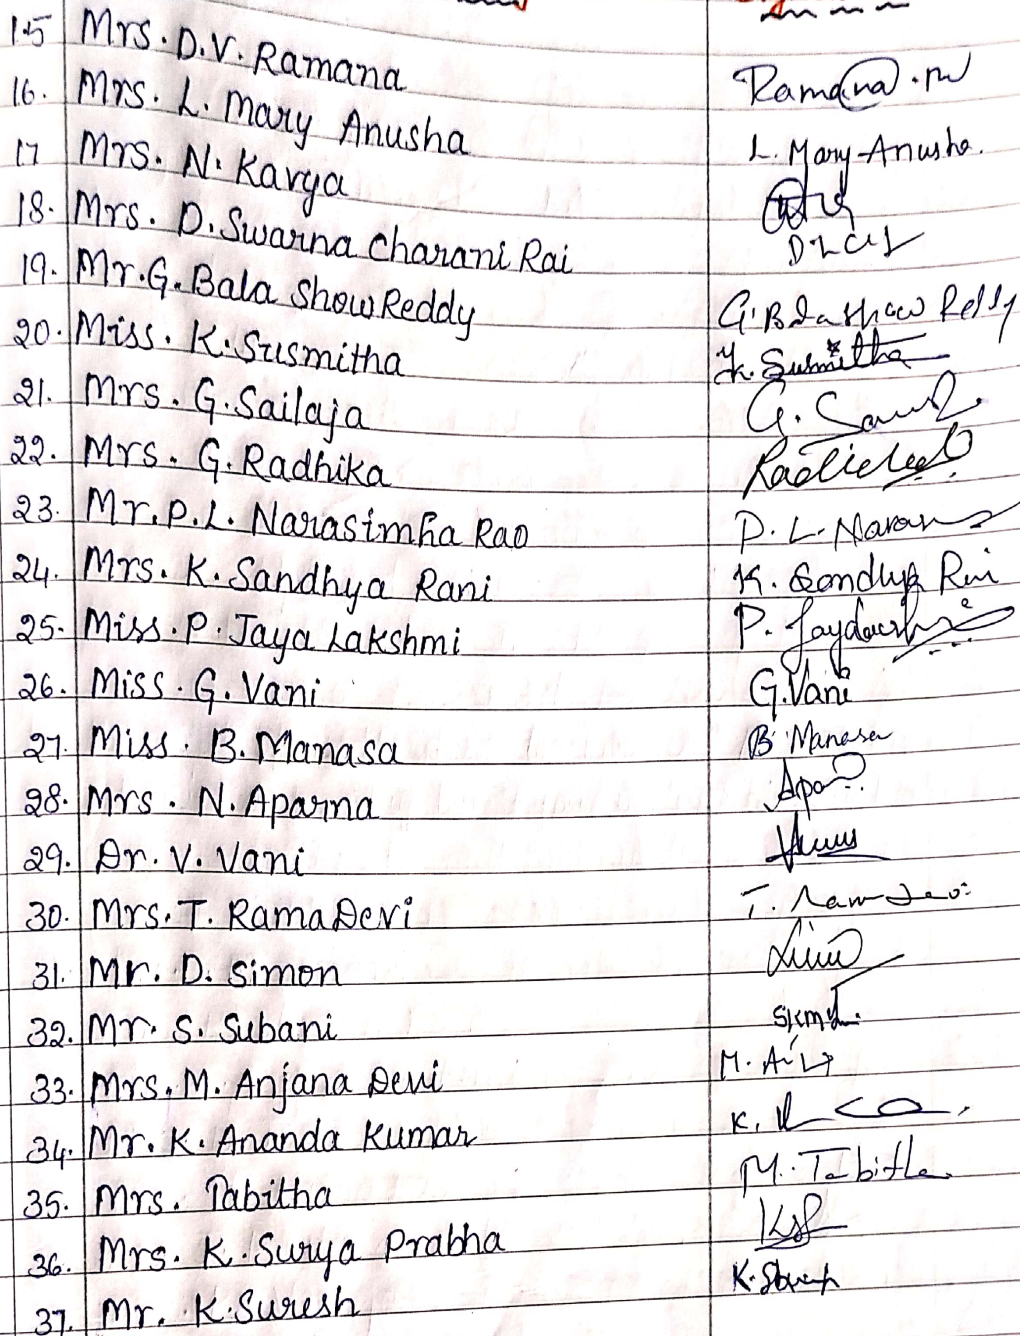 15 Mrs. D.V. Ramana Ramana
16. Mrs. L. Mary Anusha L. Mary Anusha.
17 Mrs. N. Kavya
18. Mrs. D. Swarna Charani Rai
19. Mr. G. Bala Show Reddy G. Bala show Reddy
20. Miss. K. Susmitha K. Susmitha
21. Mrs. G. Sailaja G.
22. Mrs. G. Radhika
23. Mr. P.L. Narasimha Rao P. L.
24. Mrs. K. Sandhya Rani K. Sandhya Rani
25. Miss. P. Jaya Lakshmi P.
26. Miss. G. Vani G. Vani
27. Miss. B. Manasa B. Manasa
28. Mrs. N. Aparna
29. Dr. V. Vani
30. Mrs. T. Rama Devi T.
31. Mr. D. Simon
32. Mr. S. Subani
33. Mrs. M. Anjana Devi M.
34. Mr. K. Ananda Kumar K.
35. Mrs. Tabitha M. Tabitha
36. Mrs. K. Surya Prabha
37. Mr. K. Suresh K.